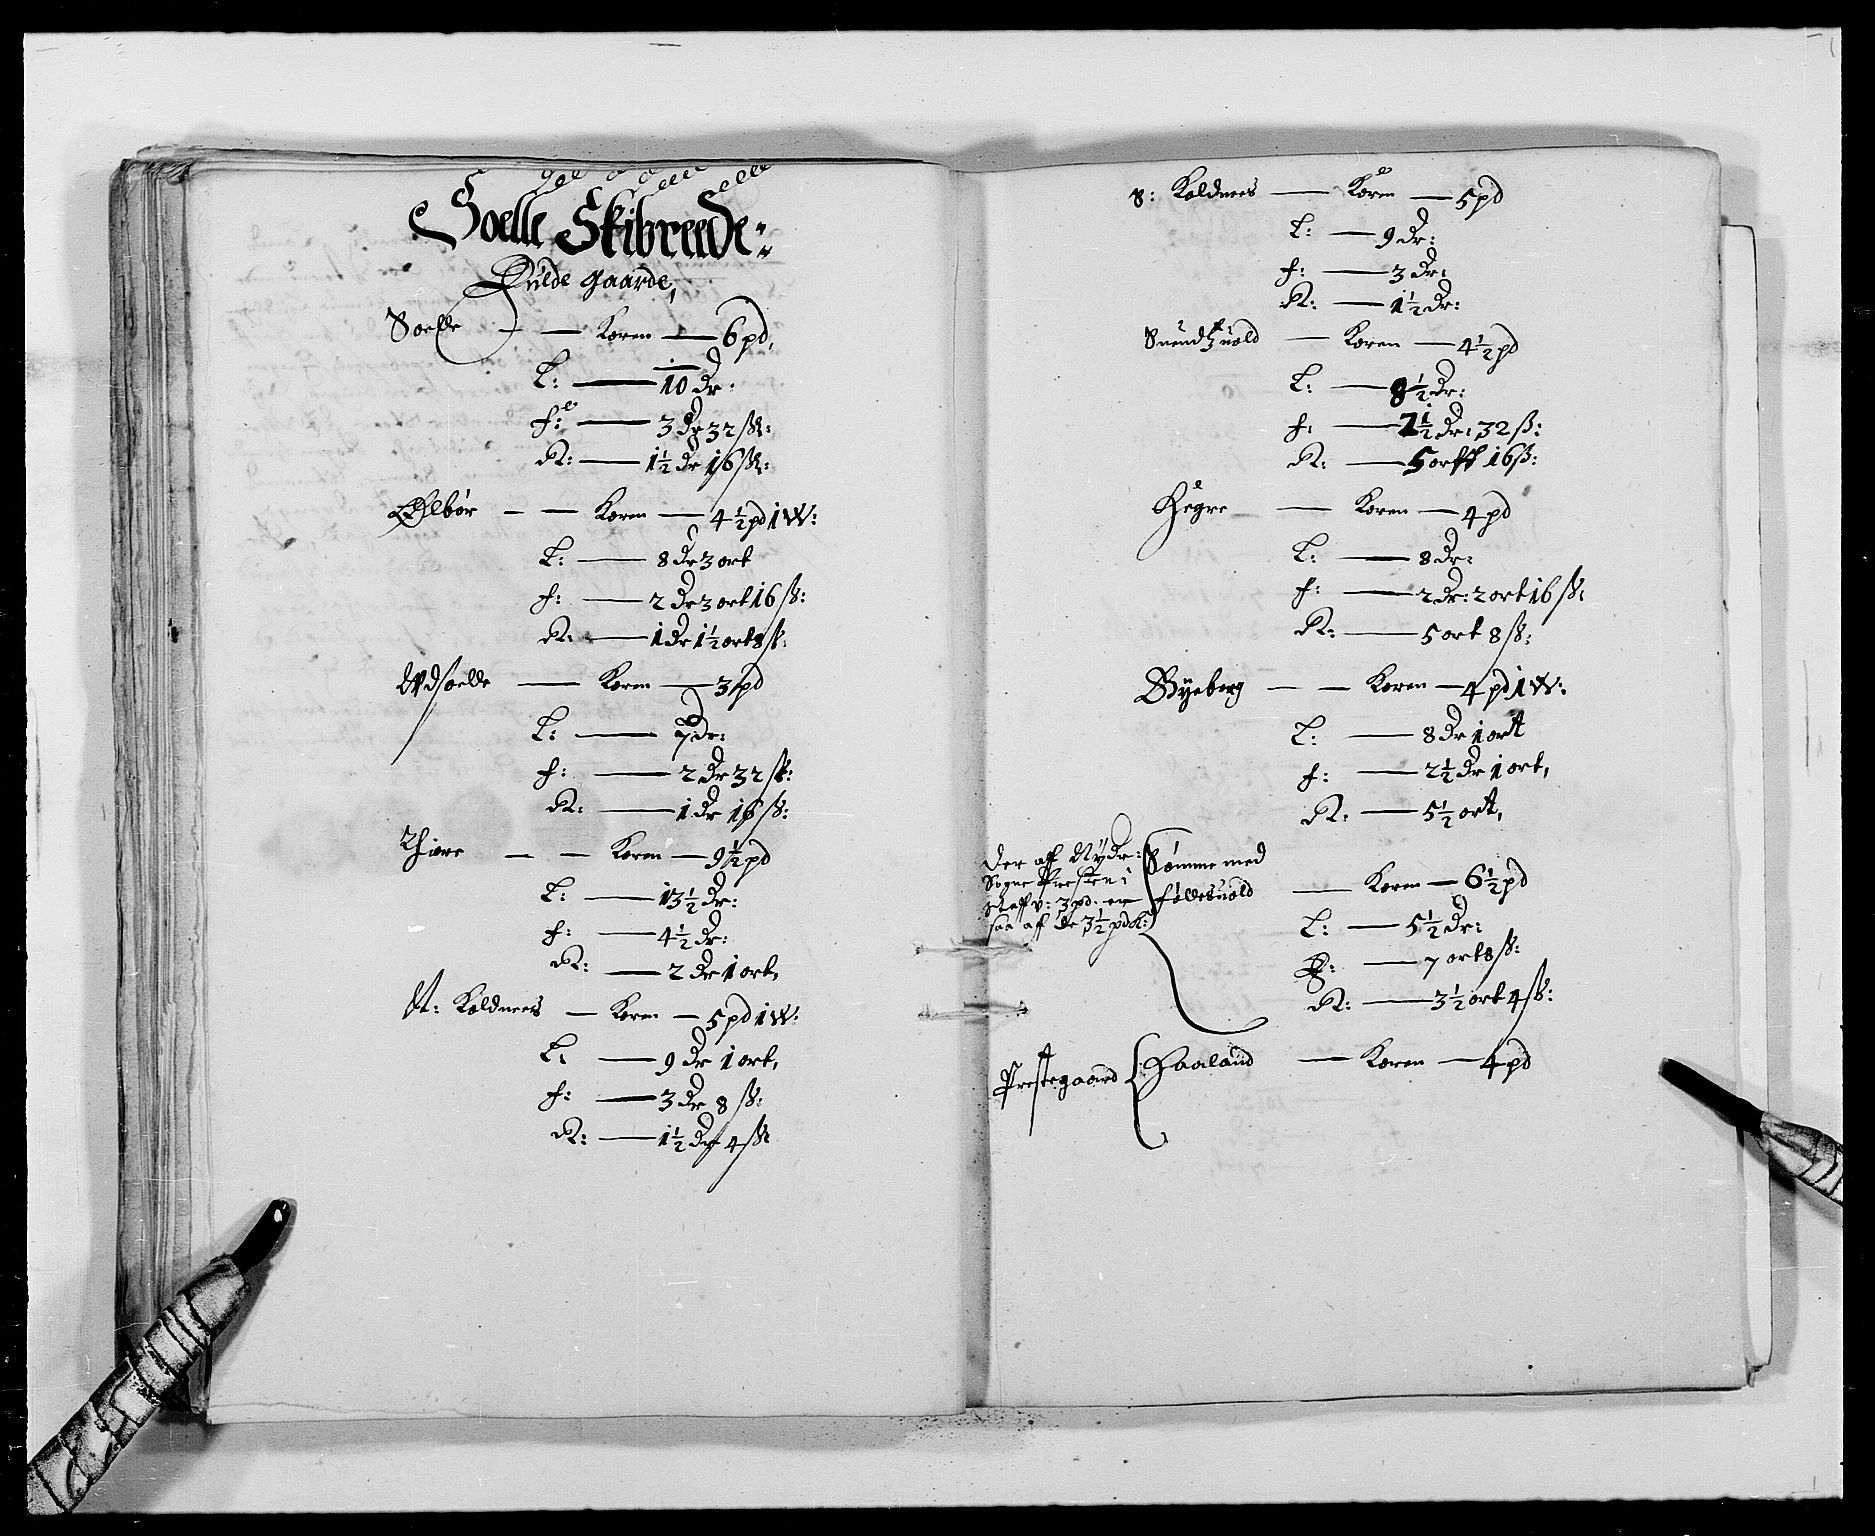 Soelle Skibreede:
Fulde gaarde,
Soelle — — Koren — 6 pd,
L: — 10 Dr:
f: — 3 Dr 32 sk:
R: — 1½ Dr 16 sk:
Ølbør — — Koren — 4½ pd 1 W:
L: — 8 Dr 3 ort
f: — 2 Dr 3 ort 16 sk:
R: — 1 Dr 1½ ort 8 sk:
Udsoelle — Koren — 3 pd
L: — 7 dr:
f: — 2 Dr 32 sk:
R: — 1 Dr 16 sk:
Thiore — — Koren — 9½ pd
L: — 13½ Dr:
f: — 4½ Dr:
R: — 2 Dr 1 ort,
N: Koldnees — Koren — 5 pd 1 W:
L: — 9 Dr 1 ort,
f: — 3 Dr 8 sk:
R: — 1½ Dr 4 sk:
S: Koldnees — Koren — 5 pd
L: — 9 Dr:
f: — 3 Dr:
R: — 1½ Dr:
— Koren — 4½ pd
L: — 8½ Dr:
f: — 2½ Dr: 32 sk:
R: — 5 ort 16 sk:
Hegre — Koren — 4 pd
L: — 8 Dr:
f: — 2 Dr: 2 ort 16 sk:
R: — 5 ort 8 sk:
Byeberg — — Koren — 4 pd 1 W:
L: — 8 Dr 1 ort
f: — 2½ Dr 1 ort,
R: — 5½ ort,
Der af Nyder
Sogne Presten i
3 pd. er
saa af de 3½ pd R:
Sømme med
Føllesvold — Koren — 6½ pd
L: — 5½ Dr:
F: — 7 ort 8 sk:
R: — 3½ ort 4 sk:
Prestegaard Haaland — Koren — 4 pd